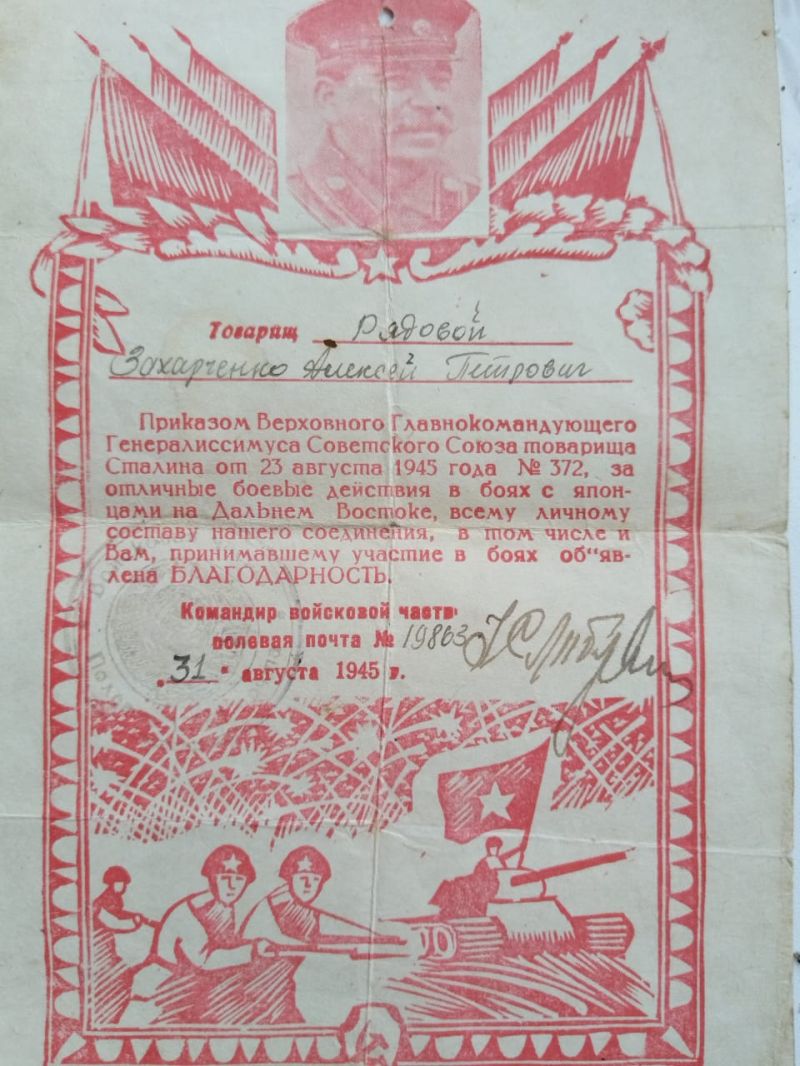 Товарищ Рядовой
Захарченко Алексей Петрович
Приказом Верховного Главнокомандующего
Генералиссимуса Советского Союза товарища
Сталина от 23 августа 1945 года № 372, за
отличные боевые действия в боях с япон-
цами на Дальнем Востоке, всему личному
составу нашего соединения, в том числе и
Вам, принимавшему участие в боях об“яв-
лена БЛАГОДАРНОСТЬ.
Командир войсковой части
полевая почта № 19863
"31" августа 1945 г.